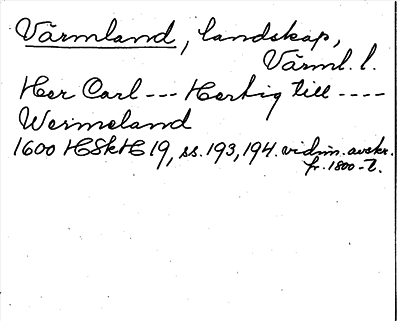 Värmland, landskap,
Värml. l.
Her Carl --- Hertig till ----
Wermeland
1600 HSkH 19, ss. 193, 194. vidim. avskr.
fr. 1800-t.